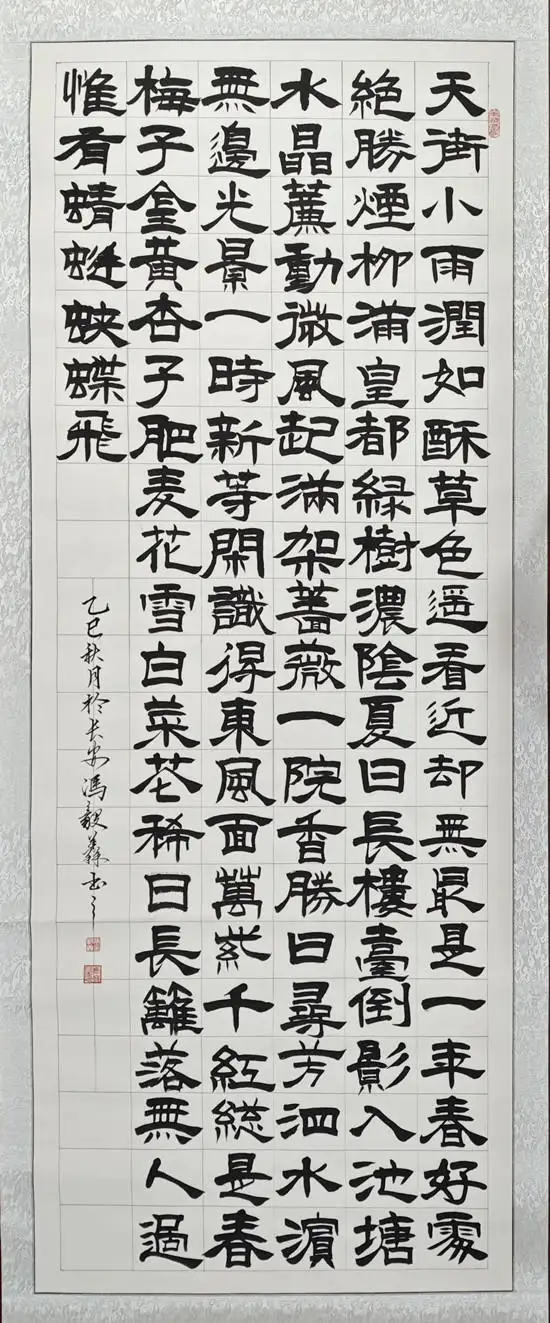 天街小雨潤如酥草色遥看近却無最是一年春好處
絶勝煙柳滿皇都緑樹濃陰夏日長樓臺倒影入池塘
水晶簾動微風起滿架薔薇一院香勝日尋芳泗水濱
無邊光景一時新等閑識得東風面萬紫千紅総是春
梅子金黄杏子肥麦花雪白菜花稀日長籬落無人過
惟有蜻蜓蛺蝶飛
乙巳秋月於长安馮毅书之